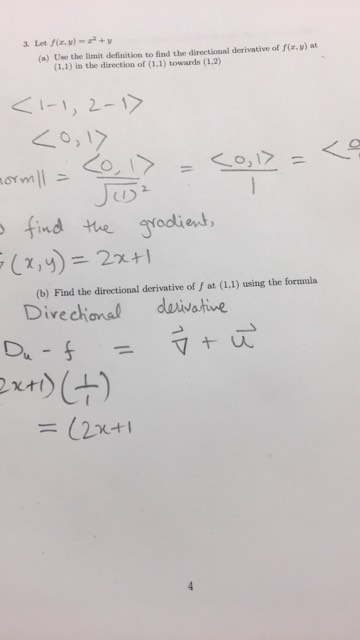 3. Let f(x, y) = x² + y
(a) Use the limit definition to find the directional derivative of f(x, y) at
(1,1) in the direction of (1,1) towards (1,2)
<1-1, 2-1>
<0,1>
norm|| = <0,1>/√(1)² = <0,1>/1 = <
find the gradient,
(x,y) = 2x+1
(b) Find the directional derivative of f at (1,1) using the formula
Directional derivative
Du - f = ∇⃗ + u⃗
2x+1)(1/1)
= (2x+1
4